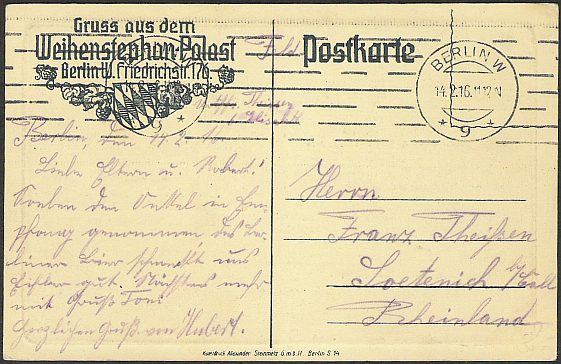 Gruss aus dem
Weihenstephan-Palast
Berlin W. Friedrichstr. 176
Feld
Postkarte
BERLIN W
14.2.16. 11-12 V
* 9 *
Berlin, den 14.2.16.
Liebe Eltern u. Robert!
Soeben den Onkel in Em-
pfang genommen. das Ber-
liner Bier schmeckt uns
gut. Nächstens mehr
mit Gruß Toni
Herzlichen Gruß von Hubert.
Herrn
Franz Theißen
Soetenich bei Call
Rheinland
Kunstdruck Alexander Steinmetz G.m.b.H. Berlin S 14